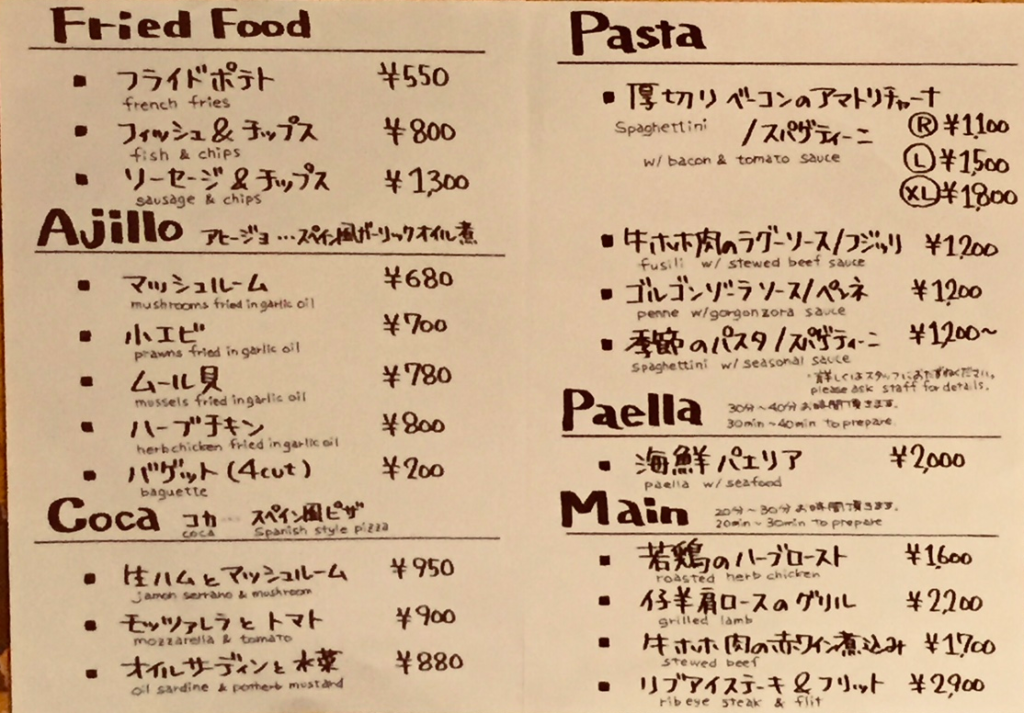 Fried Food
■ フライドポテト ¥550
french fries
■ フィッシュ & チップス ¥800
fish & chips
■ ソーセージ & チップス ¥1,300
sausage & chips
Ajillo アヒージョ…スペイン風ガーリックオイル煮
■ マッシュルーム ¥680
mushrooms fried in garlic oil
■ 小エビ ¥700
prawns fried in garlic oil
■ ムール貝 ¥780
mussels fried in garlic oil
■ ハーブチキン ¥800
herb chicken fried in garlic oil
■ バゲット (4cut) ¥200
baguette
Coca コカ… スペイン風ピザ
coca Spanish style pizza
■ 生ハムとマッシュルーム ¥950
jamon serrano & mushroom
■ モッツァレラとトマト ¥900
mozzarella & tomato
■ オイルサーディンと水菜 ¥880
oil sardine & potherb mustard
Pasta
■ 厚切りベーコンのアマトリチャーナ
Spaghettini /スパゲティーニ Ⓡ ¥1,100
w/ bacon & tomato sauce Ⓛ ¥1,500
XL ¥1,800
■ 牛ホホ肉のラグーソース/フジッリ ¥1,200
fusili w/ stewed beef sauce
■ ゴルゴンゾーラソース/ペンネ ¥1,200
penne w/gorgonzora sauce
■ 季節のパスタ/スパゲティーニ ¥1,200〜
spaghettini w/ seasonal sauce
・詳しくはスタッフにおたずねください。
please ask staff for details.
Paella 30分〜40分お時間頂きます。
30min~40min to prepare
■ 海鮮パエリア ¥2,000
paella w/ seafood
Main 20分〜30分お時間頂きます。
20min~30min to prepare
■ 若鶏のハーブロースト ¥1,600
roasted herb chicken
■ 仔羊肩ロースのグリル ¥2,200
grilled lamb
■ 牛ホホ肉の赤ワイン煮込み ¥1,700
stewed beef
■ リブアイステーキ & フリット ¥2,900
rib eye steak & flit